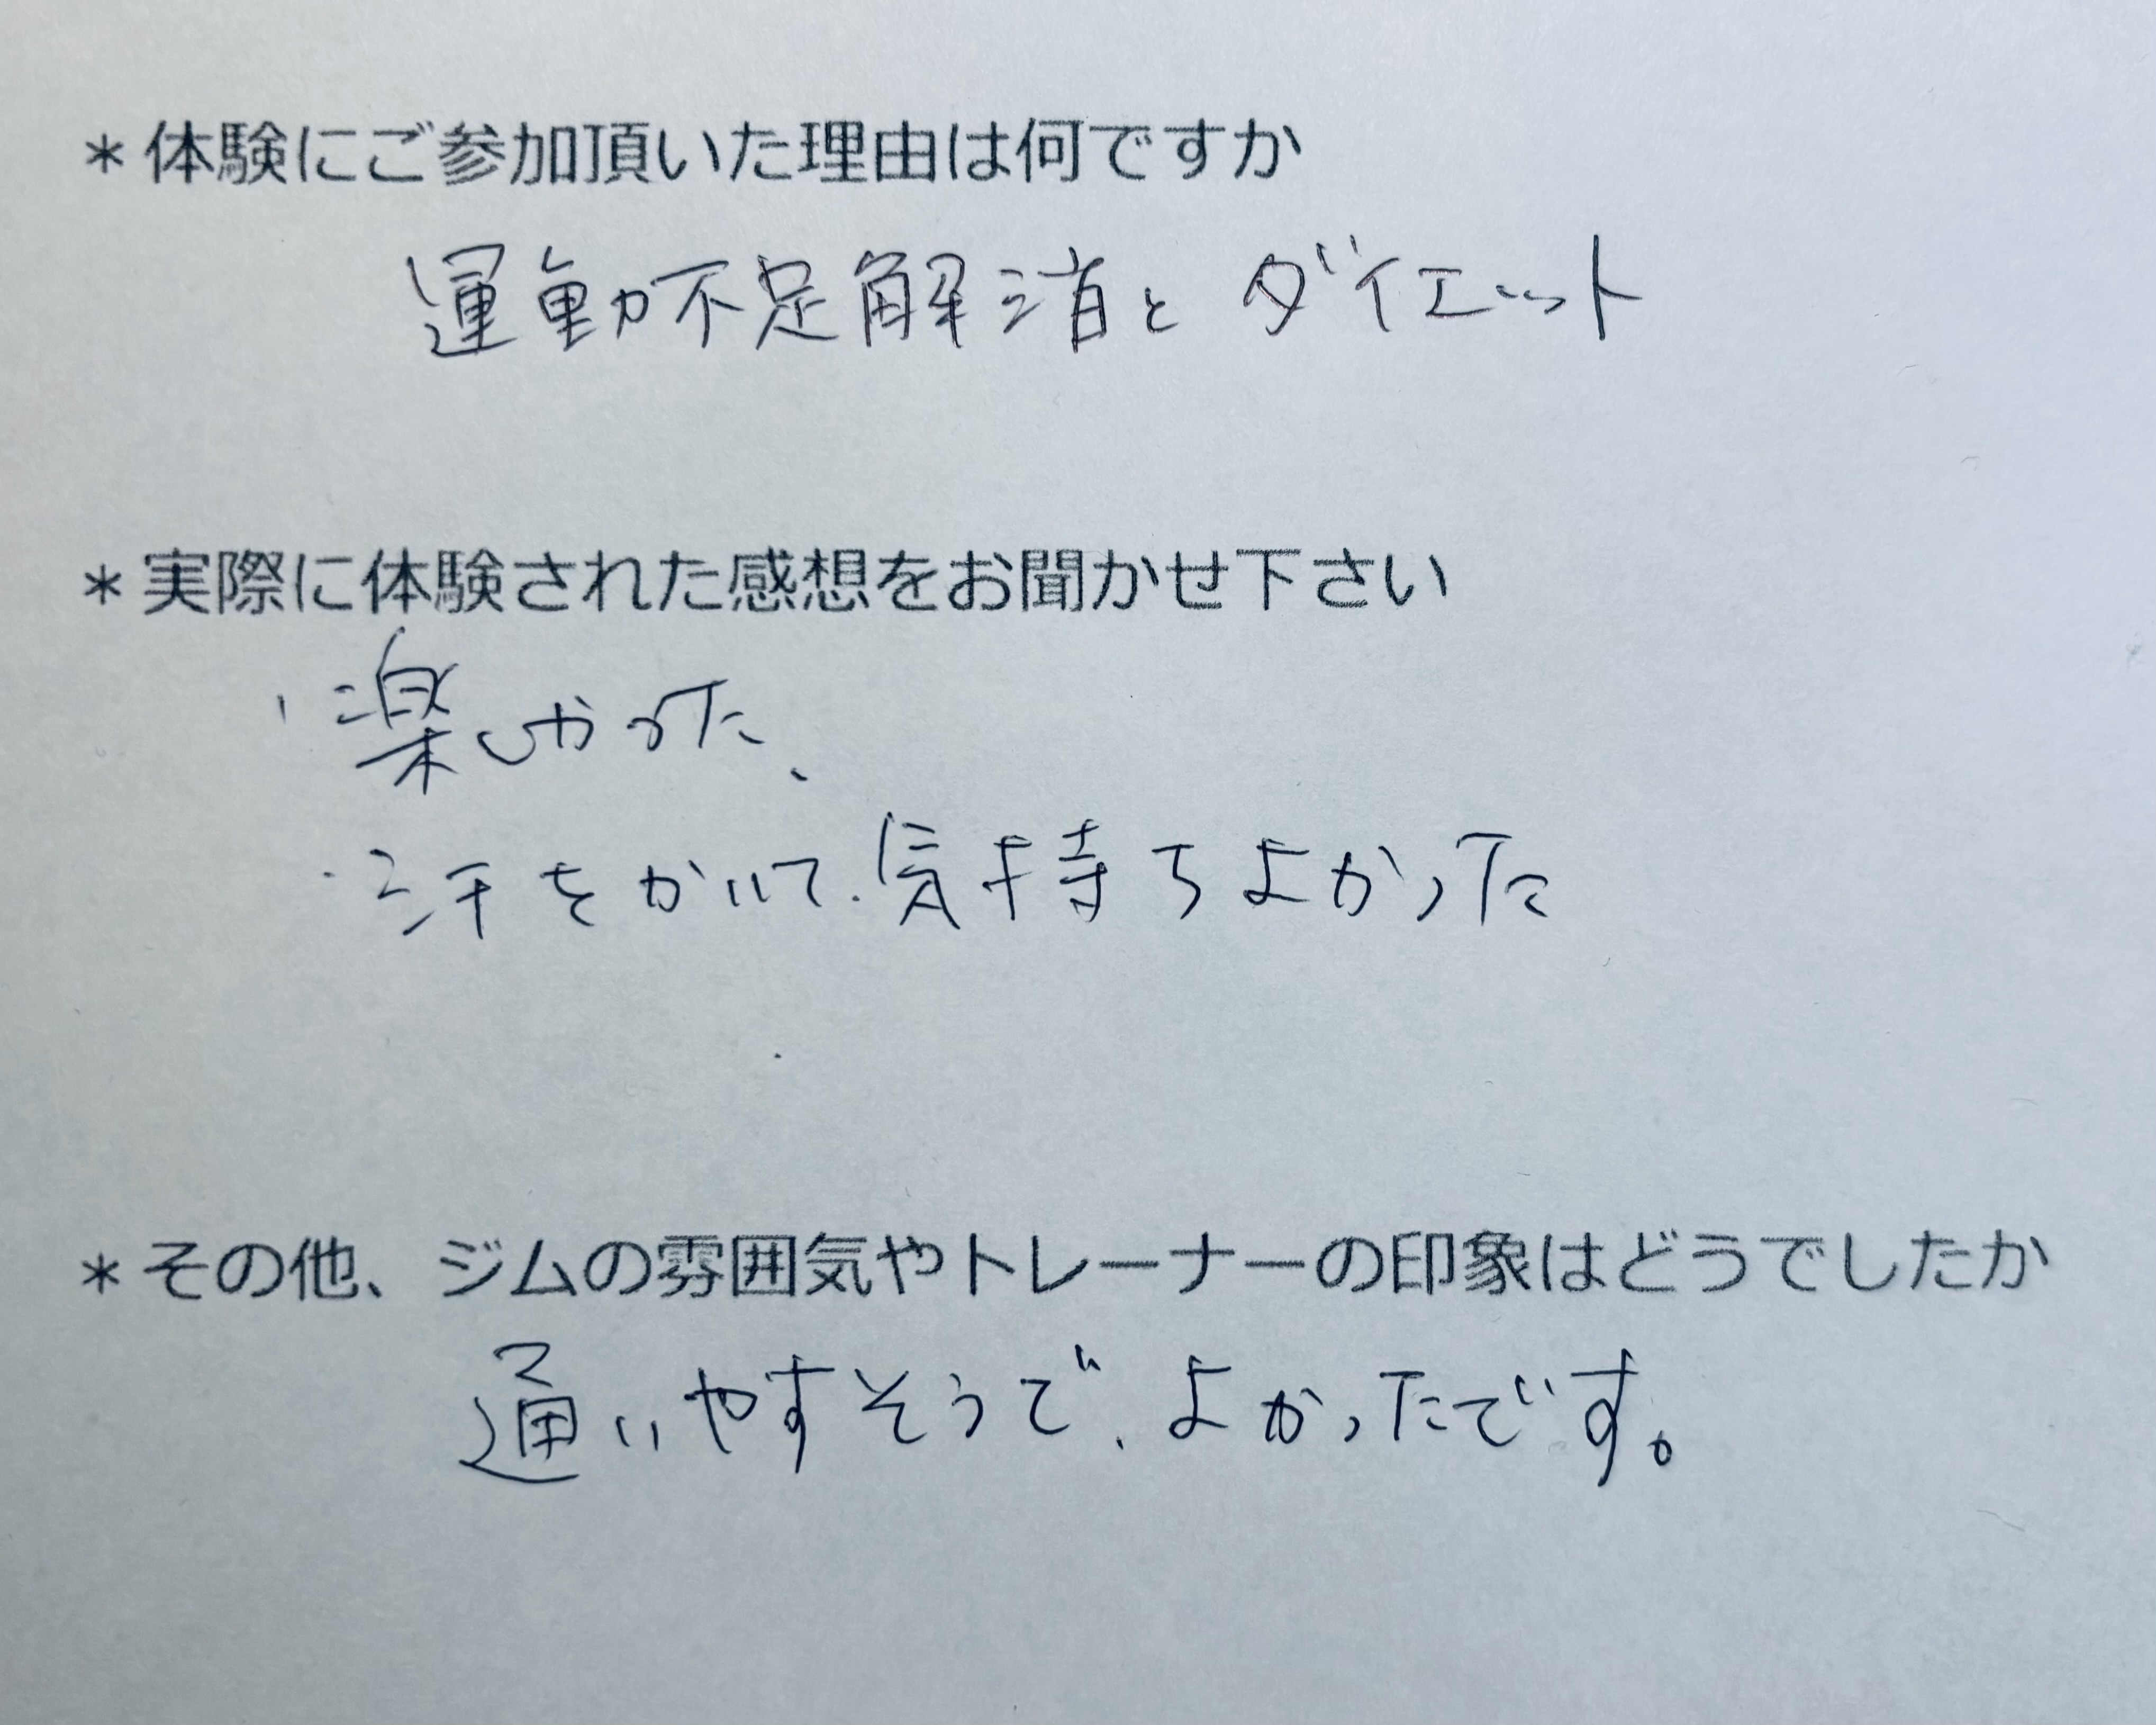 ＊体験にご参加頂いた理由は何ですか
運動不足解消とダイエット
＊実際に体験された感想をお聞かせ下さい
・楽しかった、
・汗をかいて、気持ちよかった
＊その他、ジムの雰囲気やトレーナーの印象はどうでしたか
通いやすそうで、よかったです。